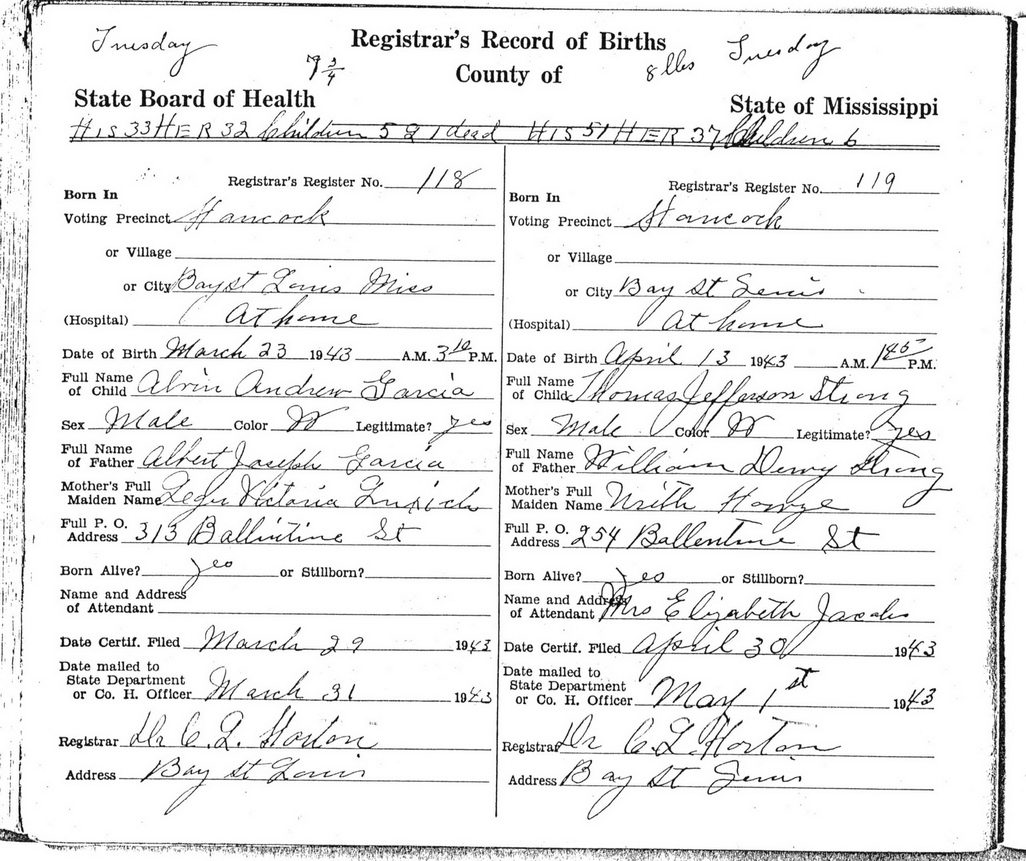 Tuesday
Registrar's Record of Births
7 3/4
8 lbs
Tuesday
County of
State Board of Health
State of Mississippi
HIS 33 HER 32 Children 5 & 1 dead
HIS 51 HER 37 Children 6
Registrar's Register No. 118
Born In
Voting Precinct Hancock
or Village
or City Bay st Louis Miss
(Hospital) At home
Date of Birth March 23 1943 A.M. 3 10 P.M.
Full Name
of Child Alvin Andrew Garcia
Sex Male Color W Legitimate? yes
Full Name
of Father Albert Joseph Garcia
Mother's Full
Maiden Name Victoria
Full P. O.
Address 313 Ballintine St
Born Alive? yes or Stillborn?
Name and Address
of Attendant
Date Certif. Filed March 29 1943
Date mailed to
State Department
or Co. H. Officer March 31 1943
Registrar Dr C. L. Horton
Address Bay St Louis
Registrar's Register No. 119
Born In
Voting Precinct Hancock
or Village
or City Bay St Louis
(Hospital) At home
Date of Birth April 13 1943 A.M. P.M.
Full Name
of Child Thomas Jefferson Strong
Sex Male Color W Legitimate? yes
Full Name
of Father William Dewy Strong
Mother's Full
Maiden Name Howze
Full P. O.
Address 254 Ballentine St
Born Alive? yes or Stillborn?
Name and Address
of Attendant Mrs Elizabeth Jacobs
Date Certif. Filed April 30 1943
Date mailed to
State Department
or Co. H. Officer May 1st 1943
Registrar Dr C. L. Horton
Address Bay St Louis